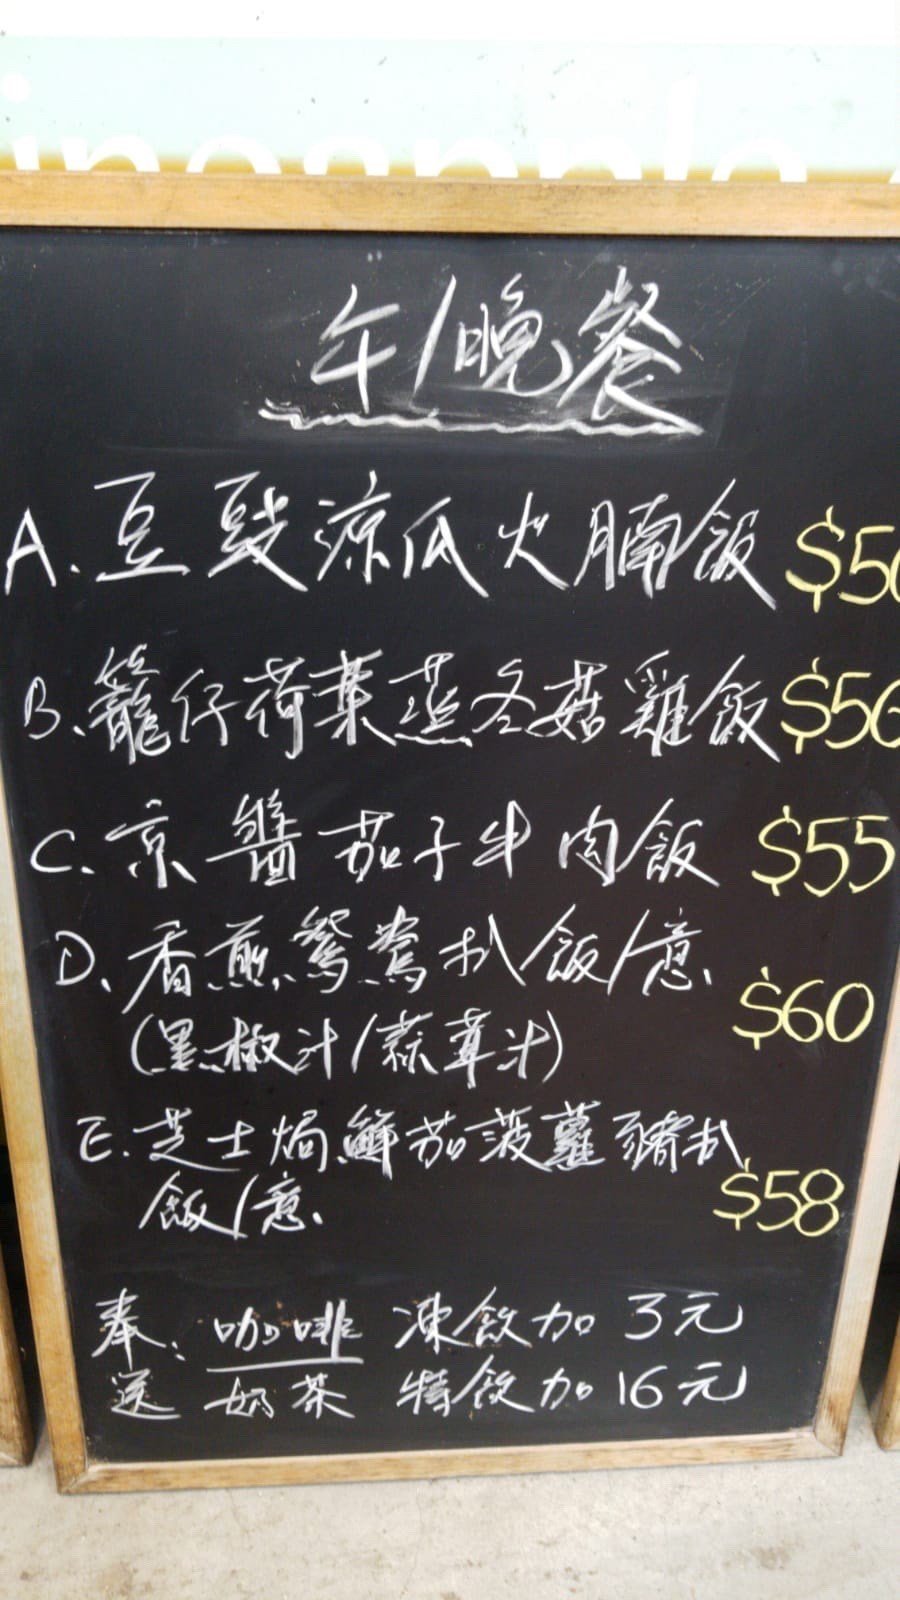 午/晚餐
A. 豆豉涼瓜火腩飯 $5
B. 籠仔荷葉蒸冬菇雞飯 $56
C. 京醬茄子牛肉飯 $55
D. 香煎鴛鴦扒飯/意. $60
(黑椒汁/蒜茸汁)
E. 芝士焗鮮茄菠蘿豬扒
飯/意. $58
奉: 咖啡 凍飲加 3元
送 奶茶 特飲加 16元